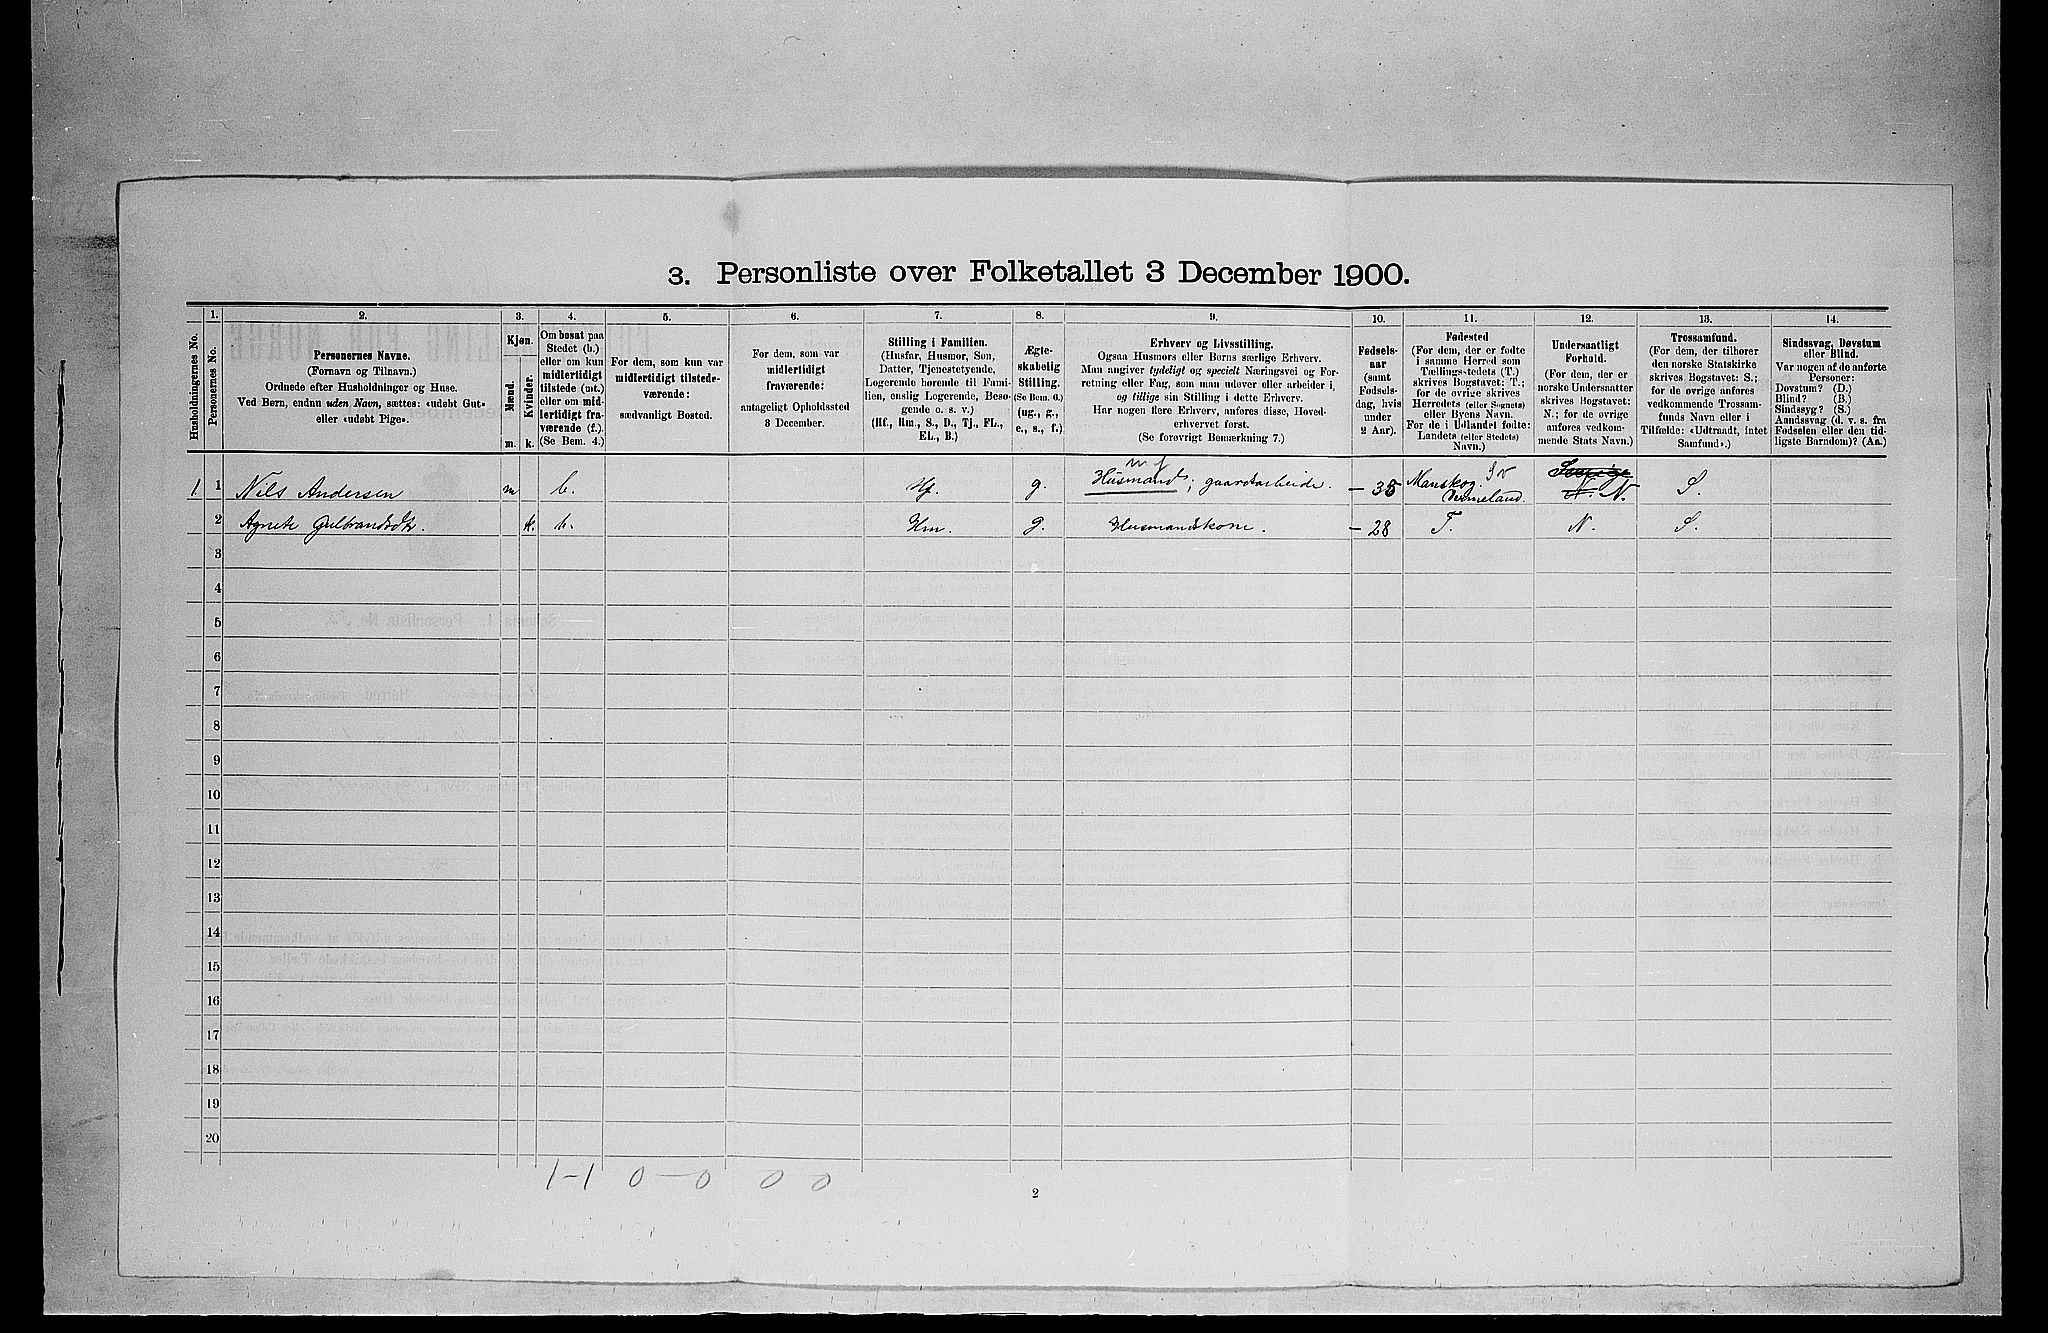 3. Personliste over Folketallet 3 December 1900.
1. 2. 3. 4. 5. 6. 7. 8. 9. 10. 11. 12. 13. 14.
Husholdningernes No.
Personernes No.
Personernes Navne.
(Fornavn og Tilnavn.)
Ordnede efter Husholdninger og Huse.
Ved Børn, endnu uden Navn, sættes: «udøbt Gut»
eller «udøbt Pige».
Kjøn.
Mænd.
Kvinder.
m. k.
Om bosat paa
Stedet (b.)
eller om kun
midlertidigt
tilstede (mt.)
eller om mid-
lertidigt fra-
værende (f.).
(Se Bem. 4.)
For dem, som kun var
midlertidigt tilstede-
værende:
sædvanligt Bosted.
For dem, som var
midlertidigt
fraværende:
antageligt Opholdssted
3 December.
Stilling i Familien.
(Husfar, Husmor, Søn,
Datter, Tjenestetyende,
Logerende hørende til Fami-
lien, enslig Logerende, Besø-
gende o. s. v.)
(Hf., Hm., S., D., Tj., FL.,
EL., B.)
Ægte-
skabelig
Stilling.
(Se Bem. 6.)
(ug., g.,
e., s., f.)
Erhverv og Livsstilling.
Ogsaa Husmors eller Børns særlige Erhverv.
Man angiver tydeligt og specielt Næringsvei og For-
retning eller Fag, som man udøver eller arbeider i,
og tillige sin Stilling i dette Erhverv.
Har nogen flere Erhverv, anføres disse, Hoved-
erhvervet først.
(Se forøvrigt Bemerkning 7.)
Fødsels-
aar
(samt
Fødsels-
dag, hvis
under
2 Aar).
Fødested
(For dem, der er fødte
i samme Herred som
Tællingsstedets (T.)
skrives Bogstavet: T.;
for de øvrige skrives
Herredets (eller Sognets)
eller Byens Navn.
For de i Udlandet fødte:
Landets (eller Stedets)
Navn.)
Undersaatligt
Forhold.
(For dem, der er
norske Undersaatter
skrives Bogstavet:
N.; for de øvrige
anføres vedkom-
mende Stats Navn.)
Trossamfund.
(For dem, der tilhører
den norske Statskirke
skrives Bogstavet: S.;
for de øvrige anføres
vedkommende Trossam-
funds Navn eller i
Tilfælde: «Udtraadt, intet
Samfund».)
Sindssvag, Døvstum
eller Blind.
Var nogen af de anførte
Personer:
Døvstum? (D.)
Blind? (B.)
Sindssyg? (S.)
Aandssvag (d. v. s. fra
Fødselen eller den tid-
ligste Barndom)? (Aa.)
1 1 Nils Andersen m b. Hf. g. Husmand; gaardarbeide. - 35 Manskog Sv Vermeland. Sverige N. N. S.
2 Agnete Gulbrandsdtr. k. b. Hm. g. Husmandskone. - 28 T. N. S.
3
4
5
6
7
8
9
10
11
12
13
14
15
16
17
18
19
20
1-1 0-0 0 0
2